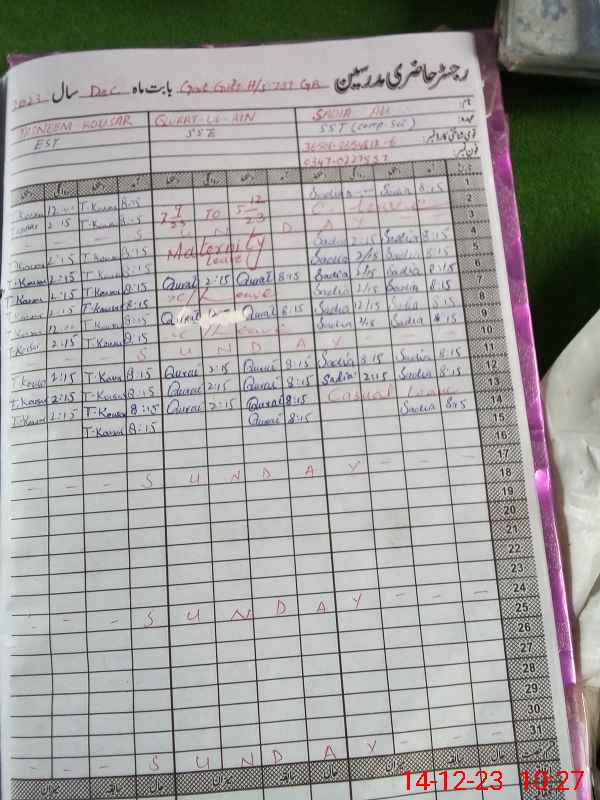 رجسٹر حاضری مدرسین Govt Girls H/S 757 GB بابت ماہ Dec سال 2023
نام: SADIA ALI QURAT-UL-AIN TASNEEM KOUSAR
عہدہ: SST (comp-Sci) SSE EST
قومی شناختی کارڈ نمبر
فون نمبر 0347-0227557
1 8:15 Sadia Sadia 8:15 T.Kousar 12
2 C. Leave 7 11/23 TO 5 12/23 8:15 T.Kousar 2:15
3 - - - S U N D A Y - - -
4 8:15 Sadia 2:15 Sadia Maternity Leave 8:15 T.Kousar 2:15
5 8:15 Sadia 2:15 Sadia 8:15 T.Kousar 2:15
6 8:15 Sadia 2:15 Sadia 8:15 Qurat 2:15 Qurat 8:15 T.Kousar 2:15
7 8:15 Sadia 2:15 Sadia C/Leave 8:15 T.Kousar 2:15
8 8:15 Sadia 12/15 Sadia 8:15 Qurat Qurat 8:15 T.Kousar 12
9 8:15 Sadia 2/15 Sadia C/Leave 8:15 T.Kousar 2:15
10 - - - S U N D A Y - - -
11 8:15 Sadia 2:15 Sadia 8:15 Qurat 2:15 Qurat 8:15 T.Kousar 2:15
12 8:15 Sadia 2:15 Sadia 8:15 Qurat 2:15 Qurat 8:15 T.Kousar 2:15
13 Casual Leave 8:15 Qurat 2:15 Qurat 8:15 T.Kousar 2:15
14 8:15 Sadia 8:15 Qurat 8:15 T.Kousar
15
16
17 - - - S U N D A Y - - -
18
19
20
21
22
23
24 - - - S U N D A Y - - -
25
26
27
28
29
30
31 - - - S U N D A Y - - -
میزان سابقہ حال میزان سابقہ حال میزان سابقہ حال
14-12-23 10:27